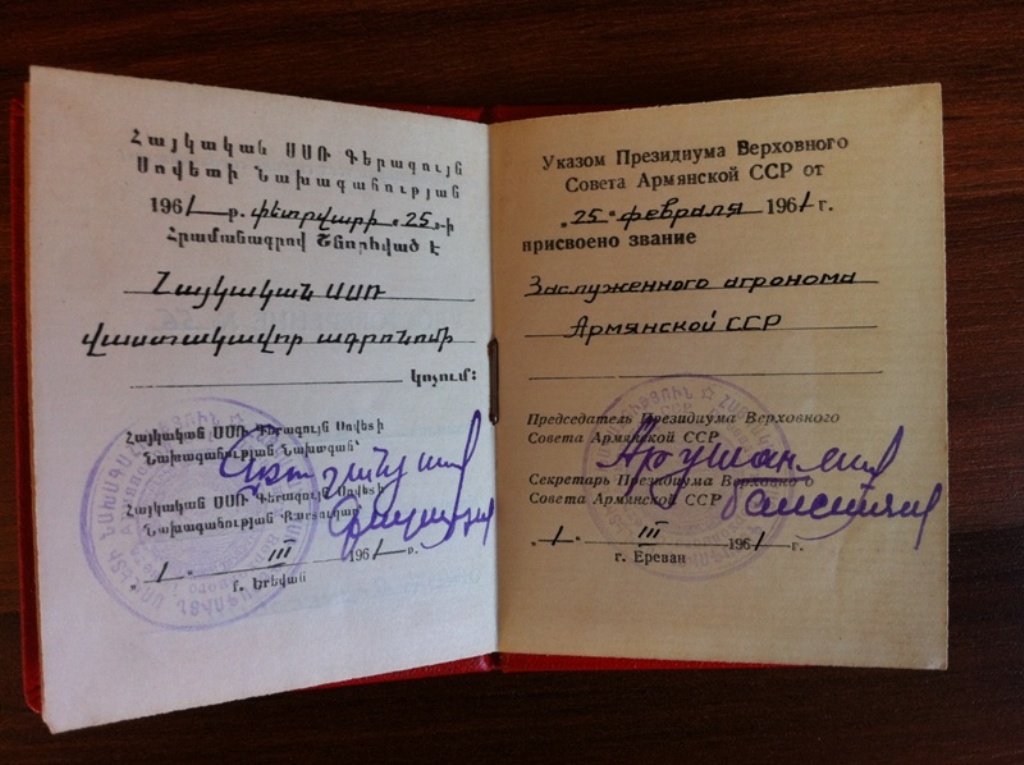 Հայկական ՍՍՌ Գերագույն
Սովետի Նախագահության
1961 թ. փետրվարի „25„-ի
Հրամանագրով Շնորհված է
Հայկական ՍՍՌ
վաստակավոր ագրոնոմի
կոչում:
Հայկական ՍՍՌ Գերագույն Սովետի
Նախագահության Նախագահ՝
Հայկական ՍՍՌ Գերագույն Սովետի
Նախագահության Քարտուղար՝
„1" III 1961 թ.
ք. Երևան
Указом Президиума Верховного
Совета Армянской ССР от
„25" февраля 1961 г.
присвоено звание
Заслуженного агронома
Армянской ССР
Председатель Президиума Верховного
Совета Армянской ССР
Арушанян
Секретарь Президиума Верховного
Совета Армянской ССР
„1" III 1961 г.
г. Ереван